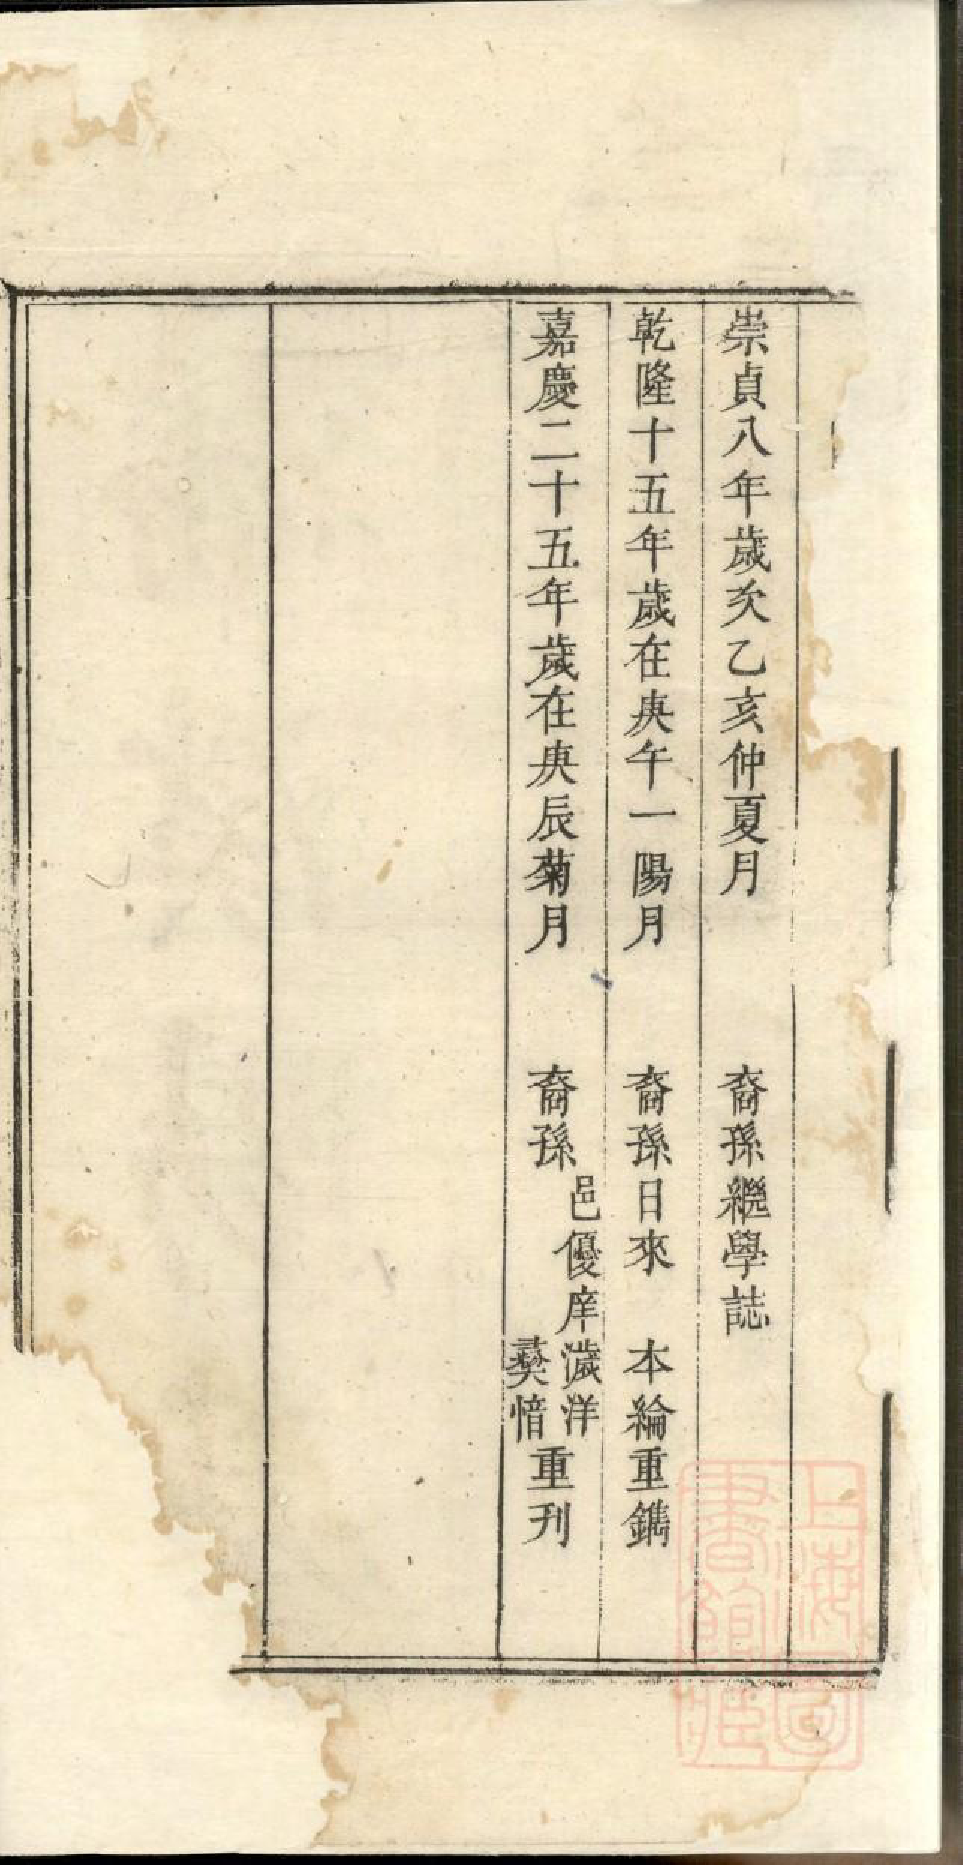 崇貞八年歲次乙亥仲夏月 裔孫繼學誌
乾隆十五年歲在庚午一陽月 裔孫日來 本綸重鐫
嘉慶二十五年歲在庚辰菊月 裔孫 邑優庠 濊洋 彝愔 重刊
上海圖書館藏